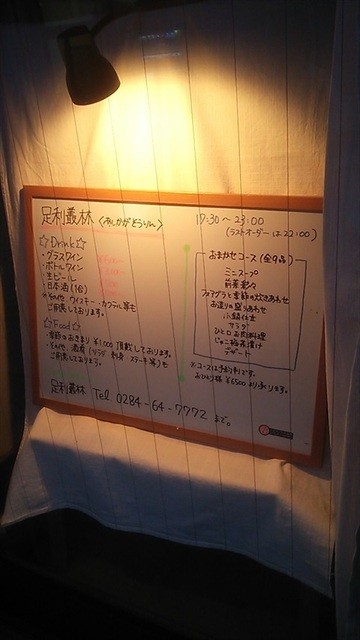 足利叢林 〈あしかがそうりん〉
17:30～23:00
(ラストオーダーは22:00)
☆Drink☆
・グラスワイン
・ボトルワイン
・生ビール
・日本酒(1合)
※その他、ウイスキー・カクテル等も
ご用意しております。
☆Food☆
・季節のおきまり ¥1,000 頂戴しております。
・その他、酒肴(サラダ・刺身・ステーキ等)も
ご用意しております。
おまかせコース(全9品)
ミニスープ
前菜彩々
フォアグラと季節の炊きあわせ
お造りの盛りあわせ
小鍋仕立
サラダ
ひと口お肉料理
じゃこ梅茶漬け
デザート
※コースは予約制です。
お一人様 ¥6500 より承ります。
足利叢林 Tel 0284-64-7772 まで。